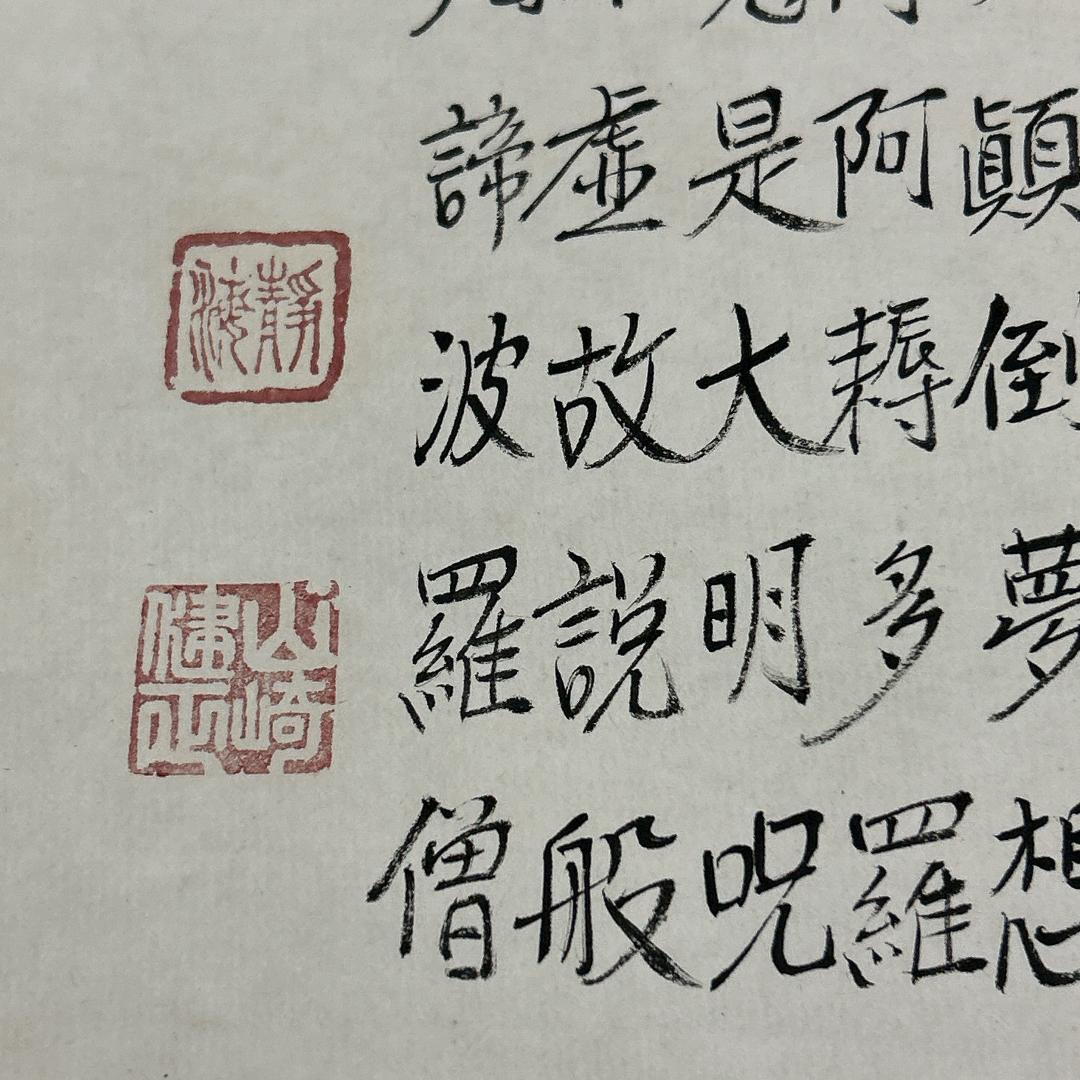 顛倒夢想
阿耨多羅
是大明呪
虛故説般
諦波羅僧
靜海
山崎健正